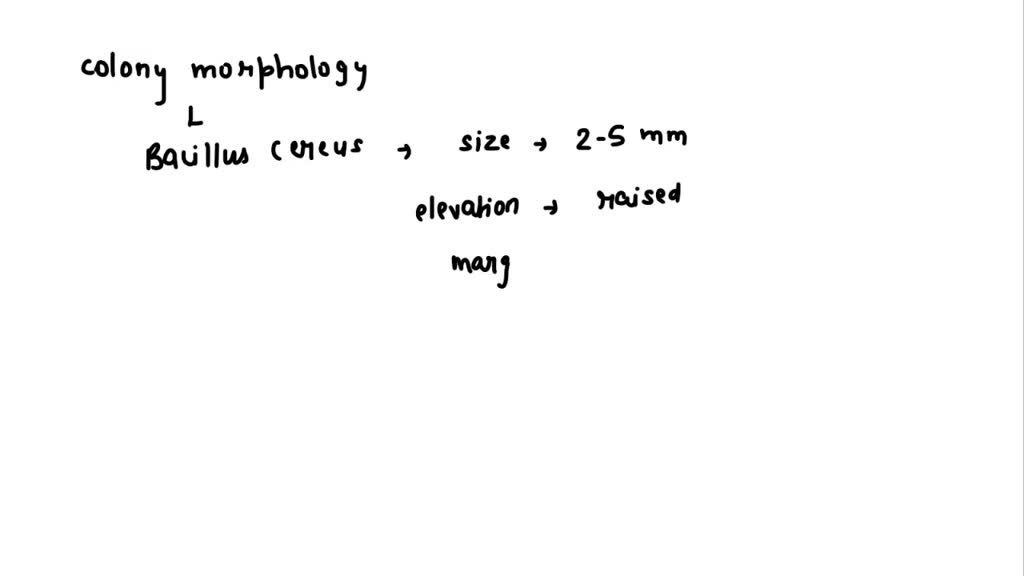 colony morphology
L
Bacillus cereus → size → 2-5 mm
elevation → raised
marg